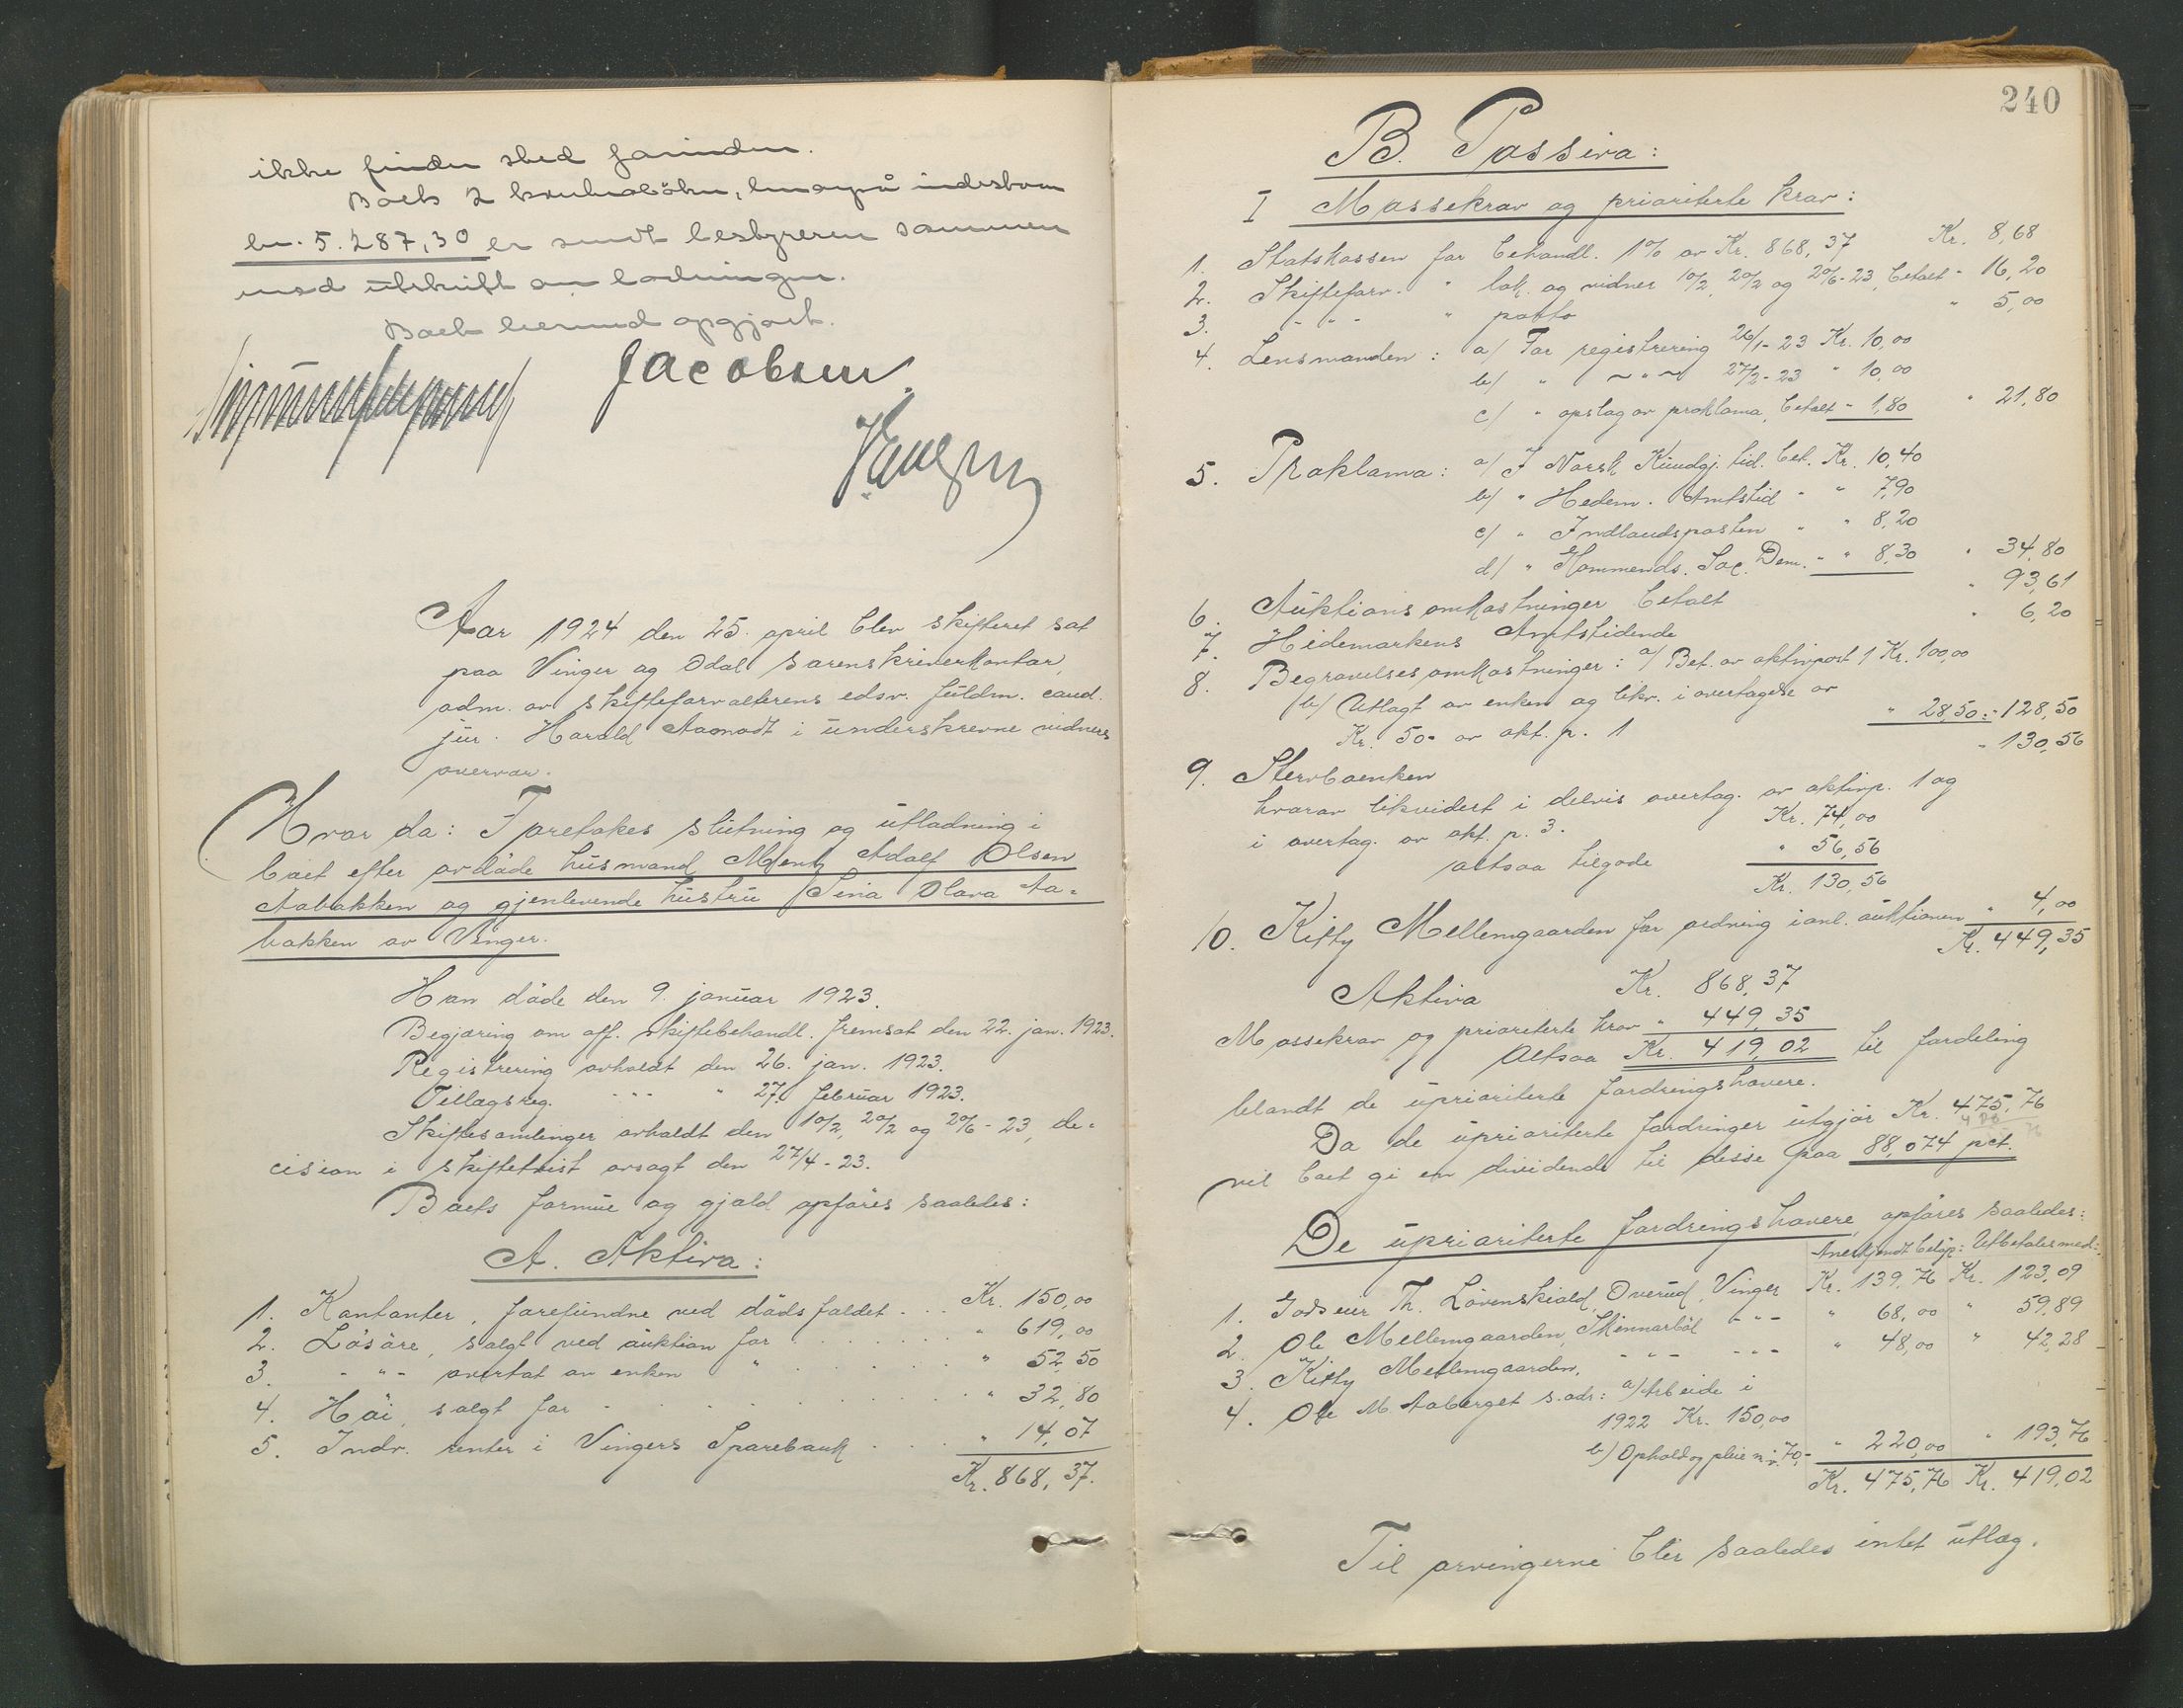 ikke finder sted forinden.
Boets 2 kontrabøker, lydende på indestaaende
kr. 5.287,30 er sendt bestyreren sammen
med utskrift av lodningen.
Boet hermed opgjort.
Jacobsen.
Aar 1924 den 25. april blev skifteret sat
paa Vinger og Odal sorenskriverkontor,
adm. av skifteforvalterens edsv. fuldm. cand.
jur. Harald Aamodt i underskrevne vidners
overvær.
Hvor da: Foretokes slutning og utlodning i
boet efter avdöde husmand Mentz Adolf Olsen
Aabakken og gjenlevende hustru Sina Olava Aa-
bakken av Vinger.
Han döde den 9. januar 1923.
Begjæring om off. skiftebehandl. fremsat den 22. jan. 1923.
Registrering avholdt den 26. jan. 1923.
Tillægsreg. - " - " 27. februar 1923.
Skiftesamlinger avholdt den 10/2, 20/2 og 20/6-23, de-
cision i skiftetvist avsagt den 27/4-23.
Boets formue og gjæld opföres saaledes:
A. Aktiva:
1. Kontanter, forefundne ved dödsfaldet . . . Kr. 150,00
2. Lösöre, solgt ved auktion for . . . . . " 619,00
3. - " - overtat av enken " . . . . . " 52,50
4. Höi, solgt for . . . . . . . " 32,80
5. Indv. renter i Vingers Sparebank . . . . " 14,07
Kr. 868,37.
240
B. Passiva:
I Massekrav og prioriterte krav:
1. Statskassen for behandl. 1% av Kr. 868,37 Kr. 8,68
2. Skifteforv. " lok. og vidner 10/2, 20/2 og 20/6-23, betalt " 16,20
3. - " - " porto " 5,00
4. Lensmanden: a/ For registrering 26/1-23 Kr. 10,00
b/ " - " - 27/2-23 " 10,00
c/ " opslag av proklama, betalt " 1,80 " 21,80
5. Proklama: a/ I Norsk Kundgj. tid. bet. Kr. 10,40
b/ " Hedem. Amtstid " " 7,90
c/ " Indlandsposten " " 8,20
d/ " Kommends. Soc. Dem. " " 8,30 " 34,80
6. Auktionsomkostninger betalt " 93,61
7. Hedemarkens Amtstidende " 6,20
8. Begravelsesomkostninger: a/ Bet. av aktivpost 1 Kr. 100,00
b/ Utlagt av enken og likv. i overtagelse av
Kr. 50- av akt. p. 1 " 28,50 = " 128,50
9. Stervboenken " 130,56
hvorav likvidert i delvis overtag. av aktivp. 1 og
i overtag. av akt. p. 3. Kr. 74,00
altsaa tilgode " 56,56
Kr. 130,56
10. Kitty Mellemgaarden for ordning i anl. auktionen " 4,00
Kr. 449,35
Aktiva Kr. 868,37
Massekrav og prioriterte krav " 449,35
Altsaa Kr. 419,02 til fordeling
blandt de uprioriterte fordringshavere.
Da de uprioriterte fordringer utgjör Kr. 475,76
vil boet gi en dividende til disse paa 88,074 pct.
De uprioriterte fordringshavere, opföres saaledes:
Anerkjendt belöp: Utbetales med:
1. Godseier Th. Lövenskiold, Overud, Vinger Kr. 139,76 Kr. 123,09
2. Ole Mellemgaarden, Skinnarböl - " - " 68,00 " 59,89
3. Kitty Mellemgaarden, - " - - " - " 48,00 " 42,28
4. Ole M. Aaberget s. adr: a/ Arbeide i
1922 Kr. 150,00
b/ Ophold og pleie " 70,- " 220,00 " 193,76
Kr. 475,76 Kr. 419,02
Til arvingerne blir saaledes intet utlæg.